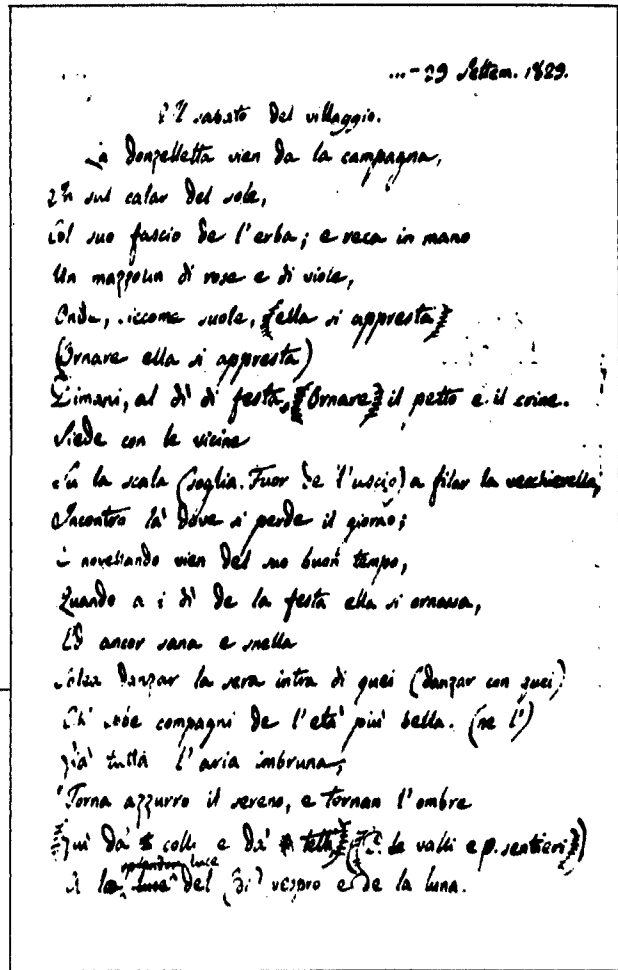 ...-29 Settem. 1829.
Il sabato del villaggio.
La donzelletta vien da la campagna,
In sul calar del sole,
Col suo fascio de l'erba; e reca in mano
Un mazzolin di rose e di viole,
Onde, siccome suole, ella si appresta
(Ornare ella si appresta)
Dimani, al dì di festa, Ornare il petto e il crine.
Siede con le vicine
Su la scala (soglia. Fuor de l'uscio) a filar la vecchierella,
Incontro là dove si perde il giorno;
E novellando vien del suo buon tempo,
Quando a i dì de la festa ella si ornava,
Ed ancor sana e snella
Solea danzar la sera intra di quei (danzar con quei)
Ch' ebbe compagni de l'età più bella. (ne l')
Già tutta l'aria imbruna,
Torna azzurro il sereno, e tornan l'ombre
Giù da' colli e da' tetti (le valli e p. sentieri)
luce
A la luce del (di) vespro e de la luna.